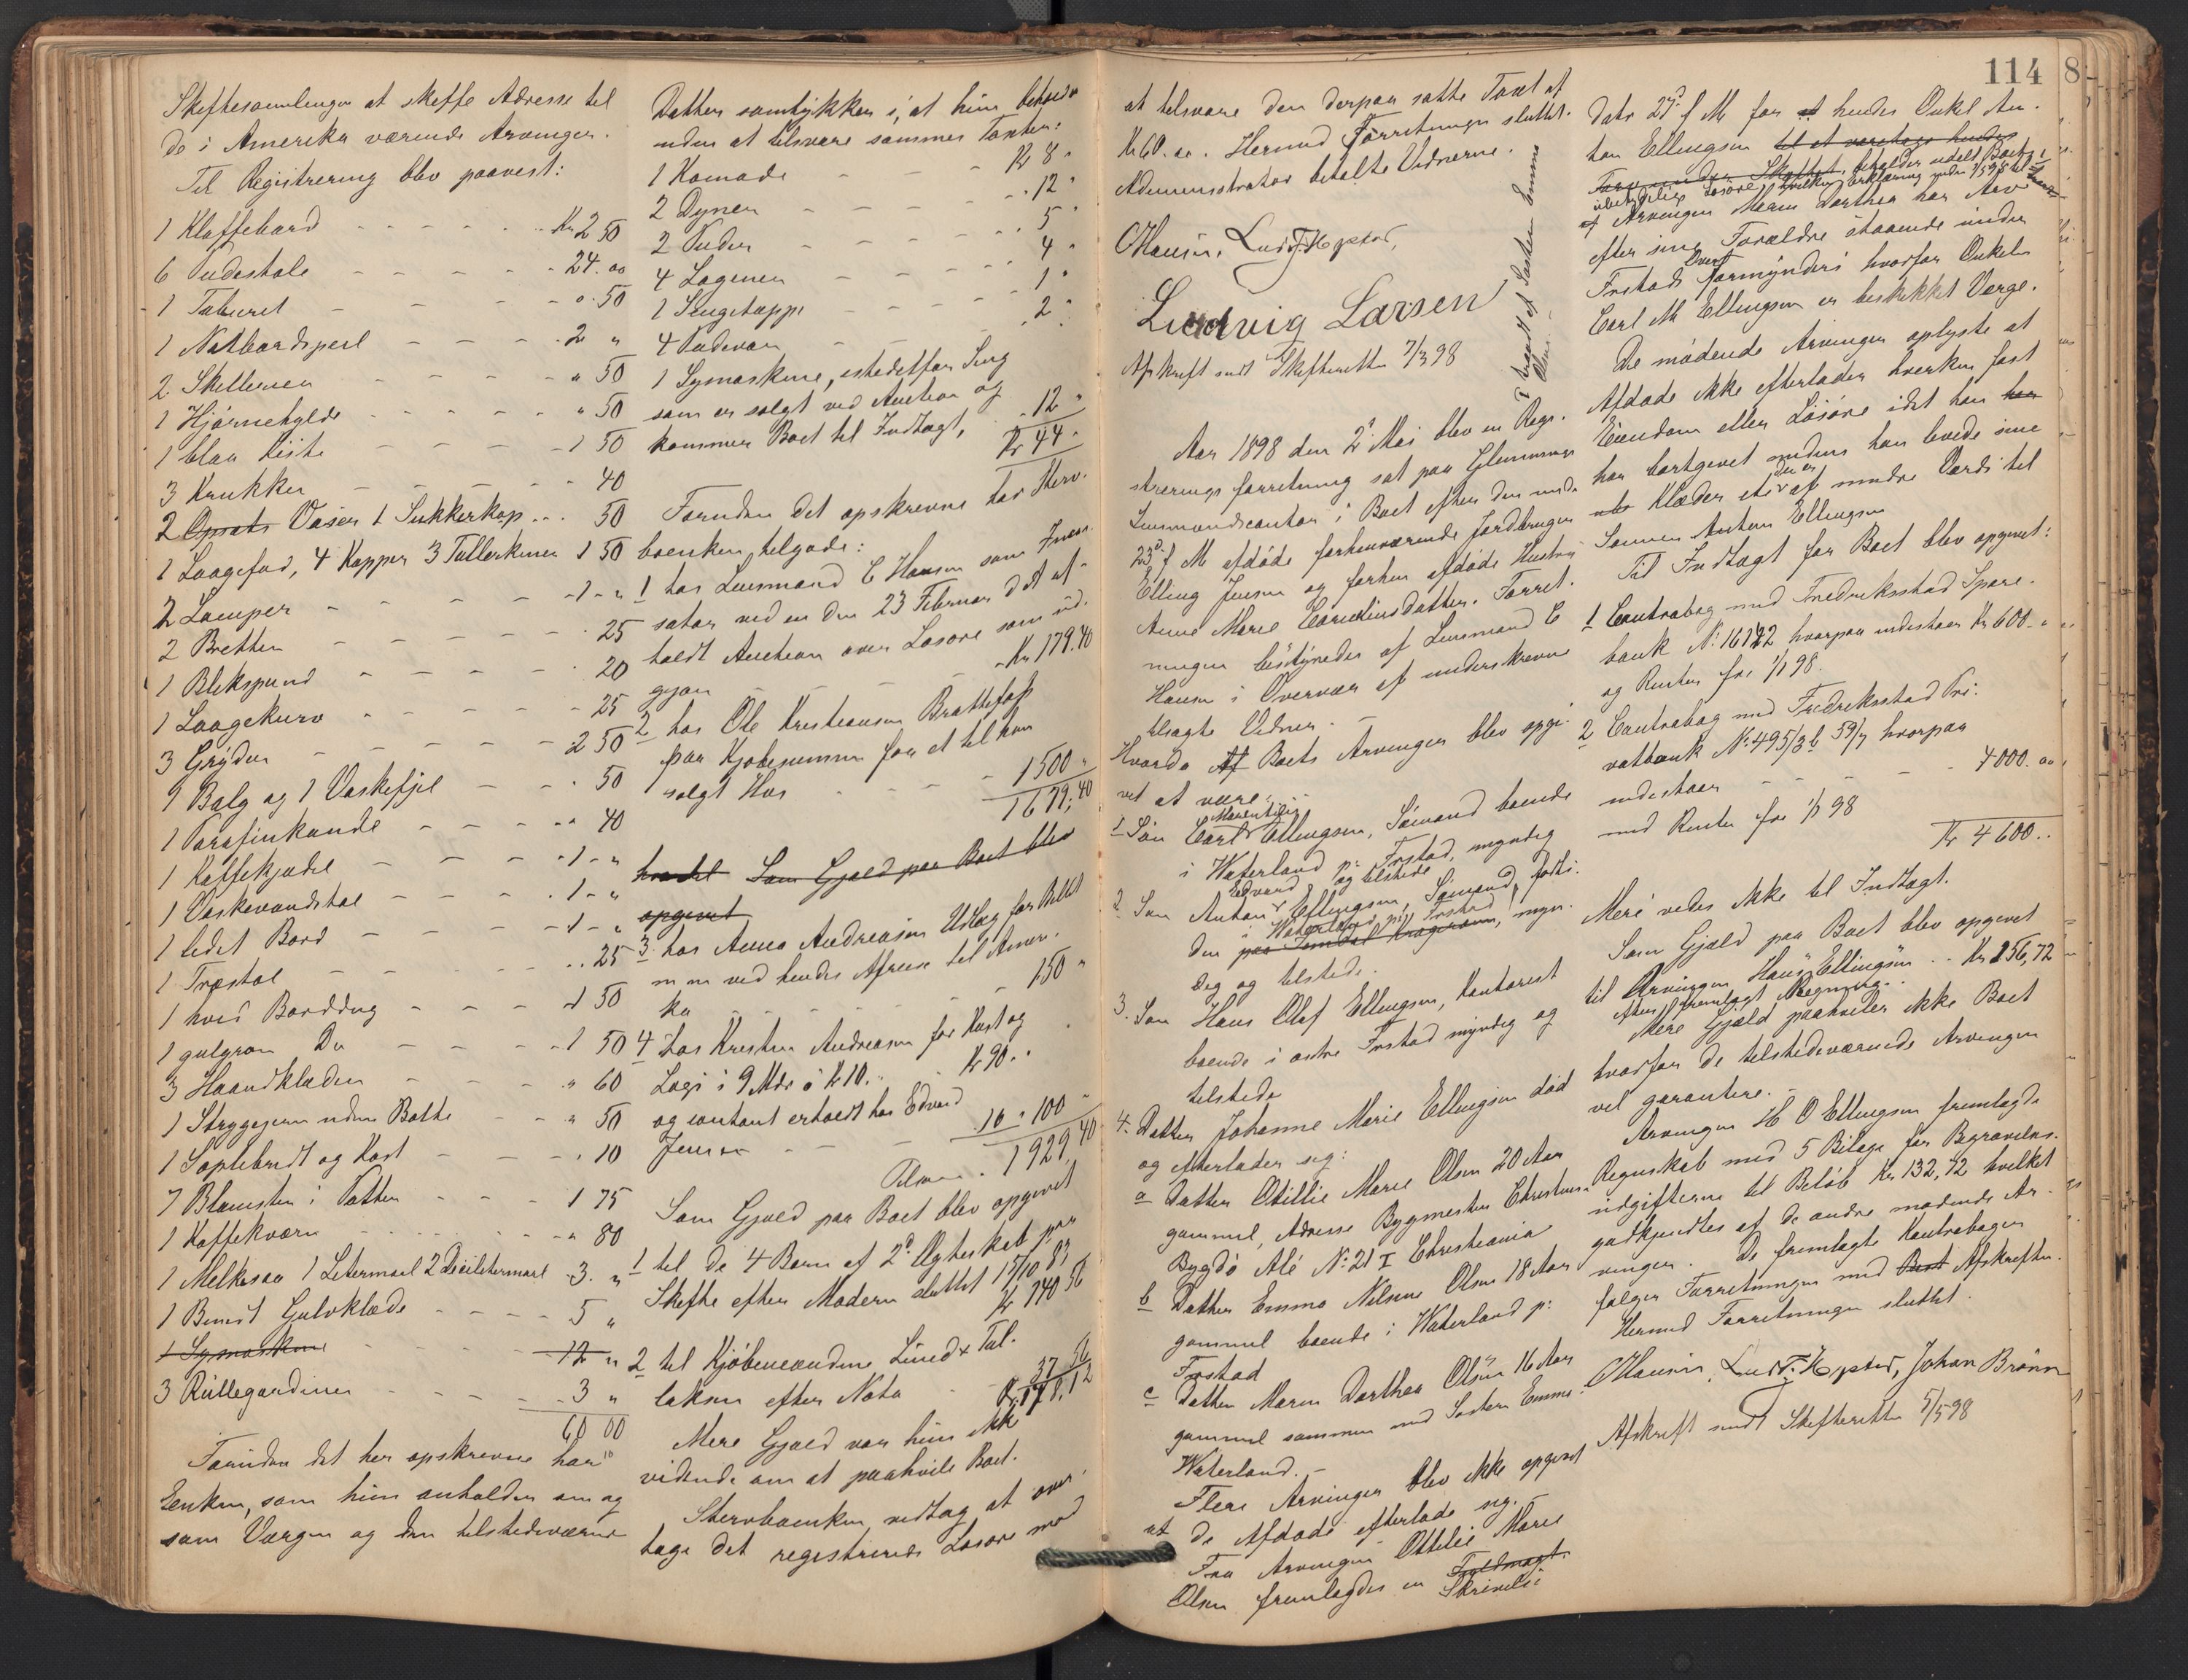 Skiftesamlingen at skaffe Adresse til
de i Amerika værende Arvinger.
Til Registrering blev paavist:
1 Klaffebord - - - Kr 2 50
6 Pudestole - - - 24.00
1 Taburet - - - 0.50
1 Natbordspeil - - - 2 "
2 Skillerier - - - " 50
1 Hjørnehylde - - - " 50
1 blaa Kiste - - - 1 50
3 Krukker - - - 40
2 Opsats Vaser 1 Sukkerkop - - 50
1 Laagefad, 4 Kopper 3 Tallerkener 1 50
2 Lamper - - - 1 - "
2 Bretter - - - 25
1 Blikspand - - - 20
1 Laagekurv - - - 25
3 Gryder - - - 2 50
1 Balg og 1 Vaskefjel - - 50
1 Parafinkande - - - 40
1 Kaffekjedel - - - 1 - "
1 Vaskevandstol - - - 1 - "
1 lidet Bord - - - 1 - "
1 Træstol - - - 25
1 hvid Borddug - - - 1 50
1 gulgrøn Do - - - 1 50
3 Haandklæder - - - " 60
1 Strygejern uden Bolte - - " 50
1 Soplebret og Kost - - - " 10
7 Blomster i Potter - - - 1 75
1 Kaffekværn - - - " 80
1 Melkesaa 1 Litermaal 2 Decilitermaal 3. "
1 Gulvklæde - - - 5 "
1 Symaskine - - - 12 "
3 Rullegardiner - - - 3 "
60 00
Foruden det her opskrevne har
Enken, som hun anholder om og
som Værgen og den tilstedeværende
Datter samtykker i, at hun beholder
uden at tilsvare sammes Taxter:
1 Komode - - - Kr 8 "
2 Dyner - - - 12 "
2 Puder - - - 5 "
4 Lagener - - - 4 "
1 Sengetæppe - - - 1 "
4 Pudevar - - - 2 "
1 Symaskine, istedetfor Seng
som er solgt ved Auction og
kommer Boet til Indtægt, 12 "
Kr 44 "
Foruden det opskrevne har Sterv-
boenken tilgode:
1 hos Lensmand C Hansen som Incas-
sator ved en den 23 Februar d A af-
holdt Auction over Løsøre som ud-
gjør - - - Kr 179.40
2 hos Ole Kristiansen Brattefoss
paa Kjøbesummen for et til ham
solgt Hus - - - 1500 "
1679,40
hvortil Som Gjæld paa Boet blev
opgivet
3. hos Anna Andreasen Udlæg for Billet
m m ved hendes Afreise til Ameri-
ka - - - 150 "
4 hos Kristin Andreasen for Kost og
Logi i 9 Mdr á Kr 10. . Kr 90. "
og contant erholdt hos Edvard
Jensen - - 10 " 100 "
Tilsam. 1929,40
Som Gjæld paa Boet blev opgivet
1 til de 4 Børn af 2det Ægteskab paa
Skifte efter Moderen sluttet 15/10 83
Kr 740 56
2 til Kjøbmændene Lund & Tal-
laksen efter Nota - 37 56
Kr 778,12
Mere Gjæld var hun ikke
vidende om at paahvile Boet.
Stervboenken vedtog at over-
tage det registrerede Løsøre mod
114
8
at tilsvare den derpaa satte Taxt af
Kr 60.00. Hermed Forretningen sluttet.
Administrator betalte Vidnerne.
CHansen, Ludv. Hopstad,
Ludvig Larsen
Afskrift sendt Skifteretten 7/3 98
Aar 1898 den 2 Mai blev en Regi-
streringsforretning sat paa Glemminge
Lensmandscontor i Boet efter den under
23 f M afdøde forhenværende Jordbruger
Elling Jensen og forhen afdøde Hustru
Anne Marie Corneliusdatter. Forret-
ningen bestyredes af Lensmand C
Hansen i Overvær af underskrevne
tilsagte Vidner. -
Hvorda Af Boets Arvinger blev opgi-
vet at være:
1 Søn Carl Martenius Ellingsen, Sømand boende
i Waterland pr Frstad, myndig
og tilstede
2 Søn Anton Edvard Ellingsen, Sømand, fosti-
i Waterland pr Frstad
den paa Tomdal Kragerøen, myn-
dig og tilstede.
3. Søn Hans Olaf Ellingsen, Kontorist
boende i østre Frstad myndig og
tilstede
4. Datter Johanne Marie Ellingsen død
og efterlader sig:
a Datter Otillie Marie Olsen 20 Aar
gammel, Adresse Bygmester Christensen
Bygdø Alé No 21 I Christiania
b Datter Emma Nilsine Olsen 18 Aar
gammel boende i Waterland pr
Frstad
c Datter Maren Dorthea Olsen 16 Aar
gammel sammen med Søster Emma
Waterland. -
Flere Arvinger blev ikke opgivet
at de Afdøde efterlode sig. -
Fra Arvingen Ottilie Marie
Olsen fremlagdes en Fuldmagt
Skrivelse
datr 29 f M for at hendes Onkel An-
ton Ellingsen til at varetage hendes
Tarv under Skiftet, beholder udelt Boets
ubetydelige Løsøre, hvilken Erklæring
af Arvingen Maren Dorthea har Arv
efter sine Forældre staaende under
Frstads Overformynderi hvorfor Onkelen
Carl M Ellingsen er beskikket Værge.
De mødende Arvinger oplyste at
Afdøde ikke efterlader hverken fast
Eiendom eller Løsøre idet han har
har bortgivet medens han levede sine
Klæder etc der er af mindre Værdi til
Sønnen Anton Ellingsen
Til Indtægt for Boet blev opgivet:
1 Contrabog med Fredriksstad Spare-
bank No 16122 hvorpaa indestaar Kr 600. "
og Renter fra 1/1 98.
2 Contrabog med Fredriksstad Pri-
vatbank No 495/3b 59/7 hvorpaa
indestaar - - - 4000.00
med Renter fra 1/1 98
Kr 4600 . .
Mere vides ikke til Indtægt.
Som Gjæld paa Boet blev opgivet
til Arvingen Hans Ellingsen . . Kr 256,72
efter fremlagt Regning.
Mere Gjæld paahviler ikke Boet
hvorfor de tilstedeværende Arvinger
vel garantere. -
Arvingen H O Ellingsen fremlagde
Regnskab med 5 Bilage for Begravelses-
udgifterne til Beløb Kr 132,72 hvilket
godkjendtes af de andre mødende Ar-
vinger. De fremlagte Kontrabøger
følger Forretningen med Boet Afskriften.
Hermed Forretningen sluttet.
CHansen, Ludv. Hopstad, Johan Brønn
Afskrift sendt Skifteretten 5/5 98